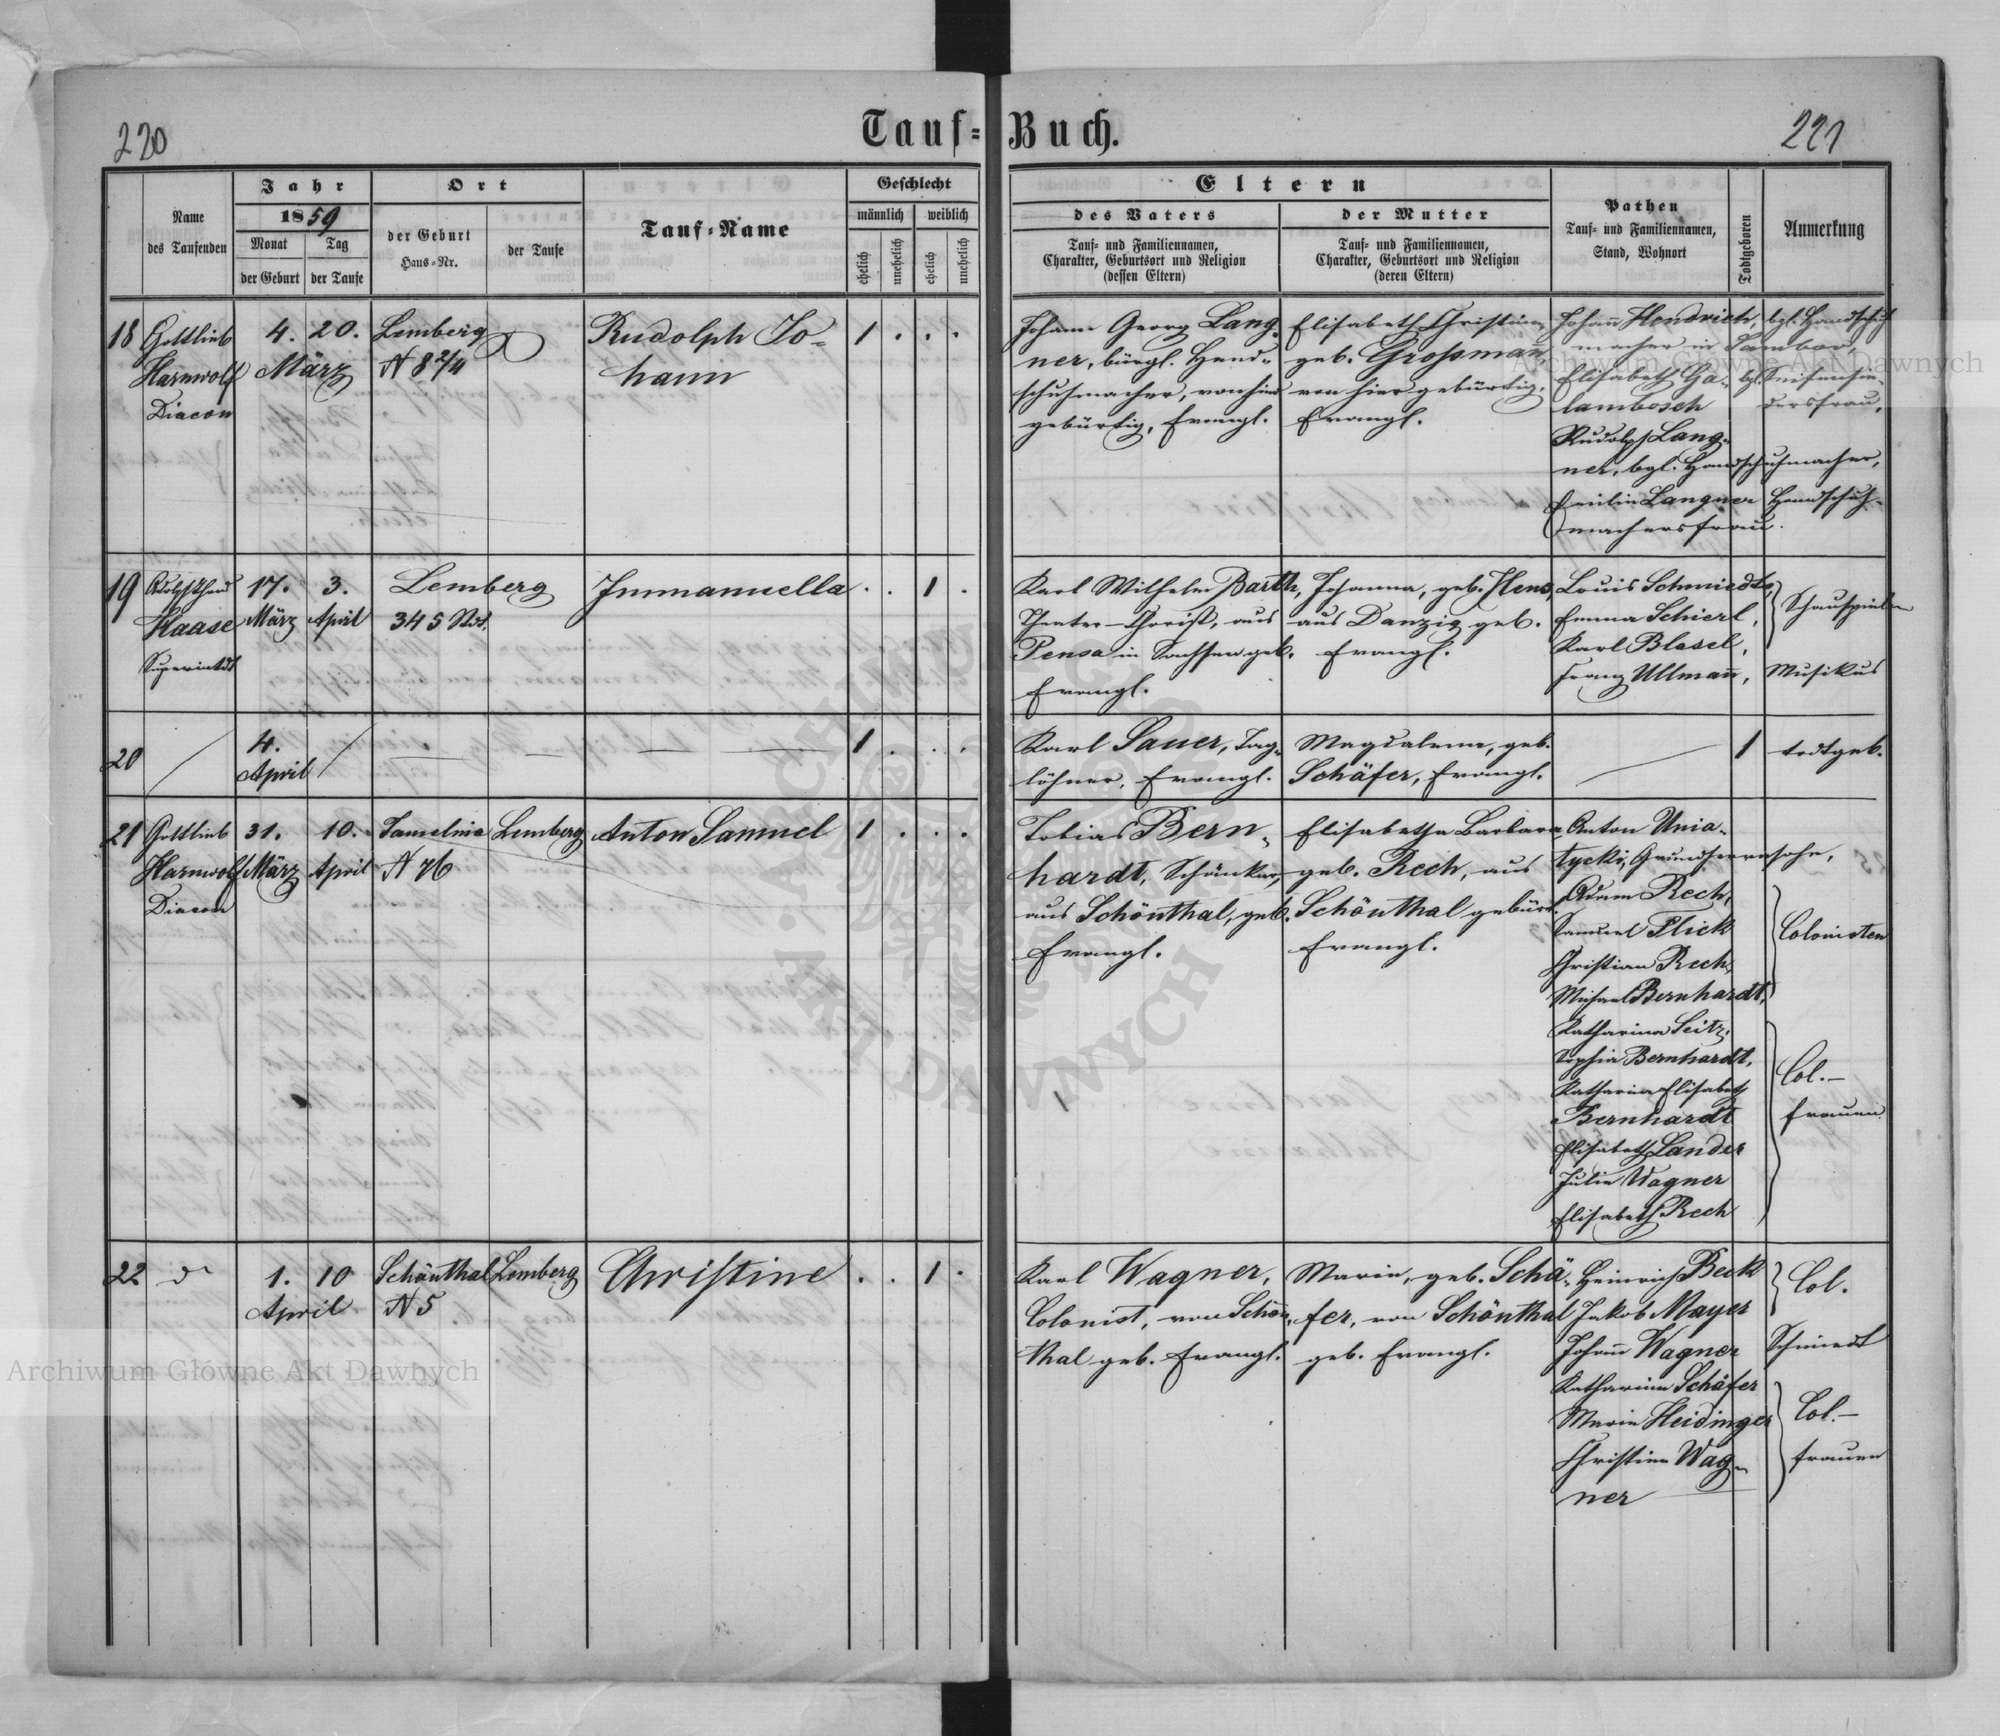 220
Tauf-Buch.
221
Name
des Taufenden
Jahr
1859
Monat
der Geburt
Tag
der Taufe
Ort
der Geburt
Haus-Nr.
der Taufe
Tauf-Name
Geschlecht
männlich
weiblich
ehelich
unehelich
ehelich
unehelich
Eltern
des Vaters
Tauf- und Familiennamen,
Charakter, Geburtsort und Religion
(dessen Eltern)
der Mutter
Tauf- und Familiennamen,
Charakter, Geburtsort und Religion
(deren Eltern)
Pathen
Tauf- und Familiennamen,
Stand, Wohnort
Todtgeboren
Anmerkung
18
Gottlieb
Harnwolf
Diacon
4.
März
20.
Lemberg
N 8 2/4
Rudolph Jo-
hann
1 . . .
Johann Georg Lang-
ner, bürgl. Hand-
schuhmacher, von hier
gebürtig, Evangl.
Elisabeth Christina,
geb. Großmann,
von hier gebürtig,
Evangl.
Johann Hendrich, bgl. Handschuh
macher in Sambor,
Elisabeth Ga- bgl. Seifensie-
lambosch dersfrau,
Rudolph Lang-
ner, bgl. Handschuhmacher,
Emilie Langner Handschuh-
machersfrau.
19
Haase
Superintdt
17.
März
3.
April
Lemberg
345 Stdt.
Immanuella
. . 1 .
Karl Wilhelm Barth,
Theater-Chorist, aus
Pensa in Sachsen geb.
Evangl.
Johanna, geb. Hens,
aus Danzig geb.
Evangl.
Louis Schmiedts,
Emma Schierl,
Karl Blasel,
Schauspieler
Franz Ullmann, Musikus
20
4.
April
1 . . .
Karl Sauer, Tag-
löhner, Evangl.
Magdalena, geb.
Schäfer, Evangl.
1
todtgeb.
21
Gottlieb
Harnwolf
Diacon
31.
März
10.
April
Jamelnia
N 76
Lemberg
Anton Samuel
1 . . .
Tobias Bern-
hardt, Schänker,
aus Schönthal, geb.
Evangl.
Elisabetha Barbara
geb. Rech, aus
Schönthal gebürt.
Evangl.
Anton Unia-
tycki, Grundherrnsohn,
Adam Rech,
Samuel Flick
Christian Rech,
Michael Bernhardt,
Colonisten
Katharina Seitz,
Sophia Bernhardt,
Katharina Elisabeth
Bernhardt
Elisabeth Lander
Julie Wagner
Elisabeth Rech
Col.-
frauen
22
do
1.
April
10
Schönthal
N 5
Lemberg
Christine
. . 1 .
Karl Wagner,
Colonist, von Schön-
thal geb. Evangl.
Marie, geb. Schä-
fer, von Schönthal
geb. Evangl.
Heinrich Beck
Jakob Mayer
Col.
Johann Wagner Schmiedt
Katharina Schäfer
Marie Heidinger
Christine Wag-
ner
Col.-
frauen
Archiwum Główne Akt Dawnych
Archiwum Główne Akt Dawnych